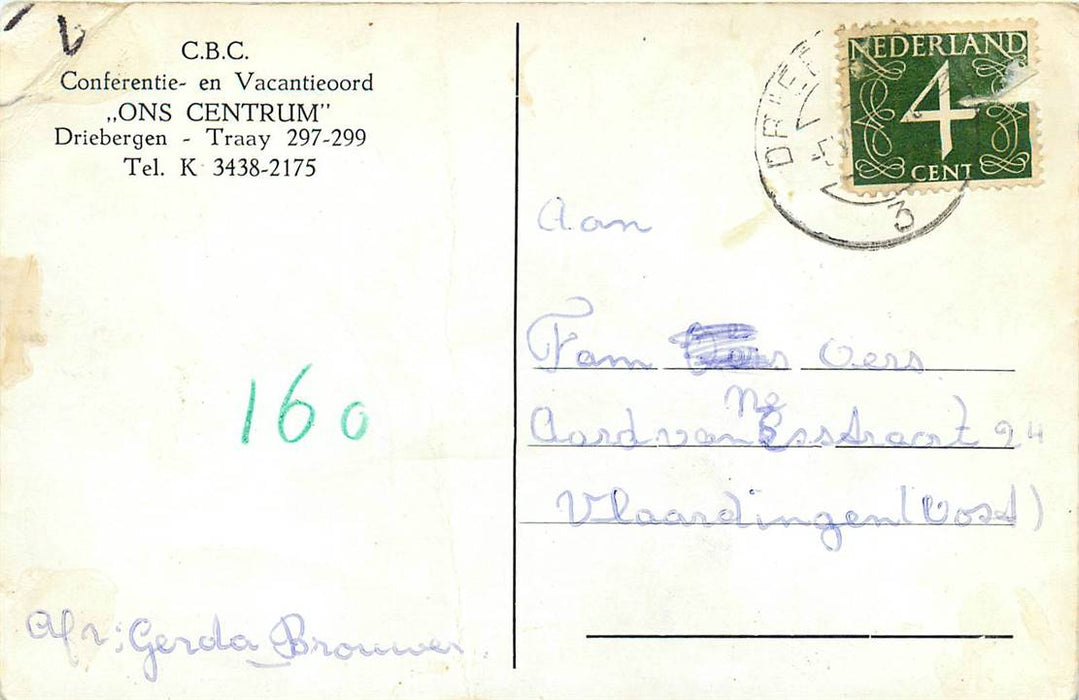 C.B.C.
Conferentie- en Vacantieoord
„ONS CENTRUM”
Driebergen - Traay 297-299
Tel. K 3438-2175
NEDERLAND
4
CENT
3
Aan
Fam Oers
24
Vlaardingen (Oost)
160
Afz: Gerda Brouwer.